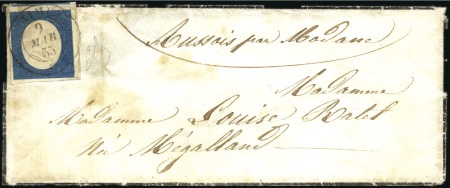 9
MAR
55
Aussois par Modane
Madamme
Madamme Louise Ratel
Née Mégalland